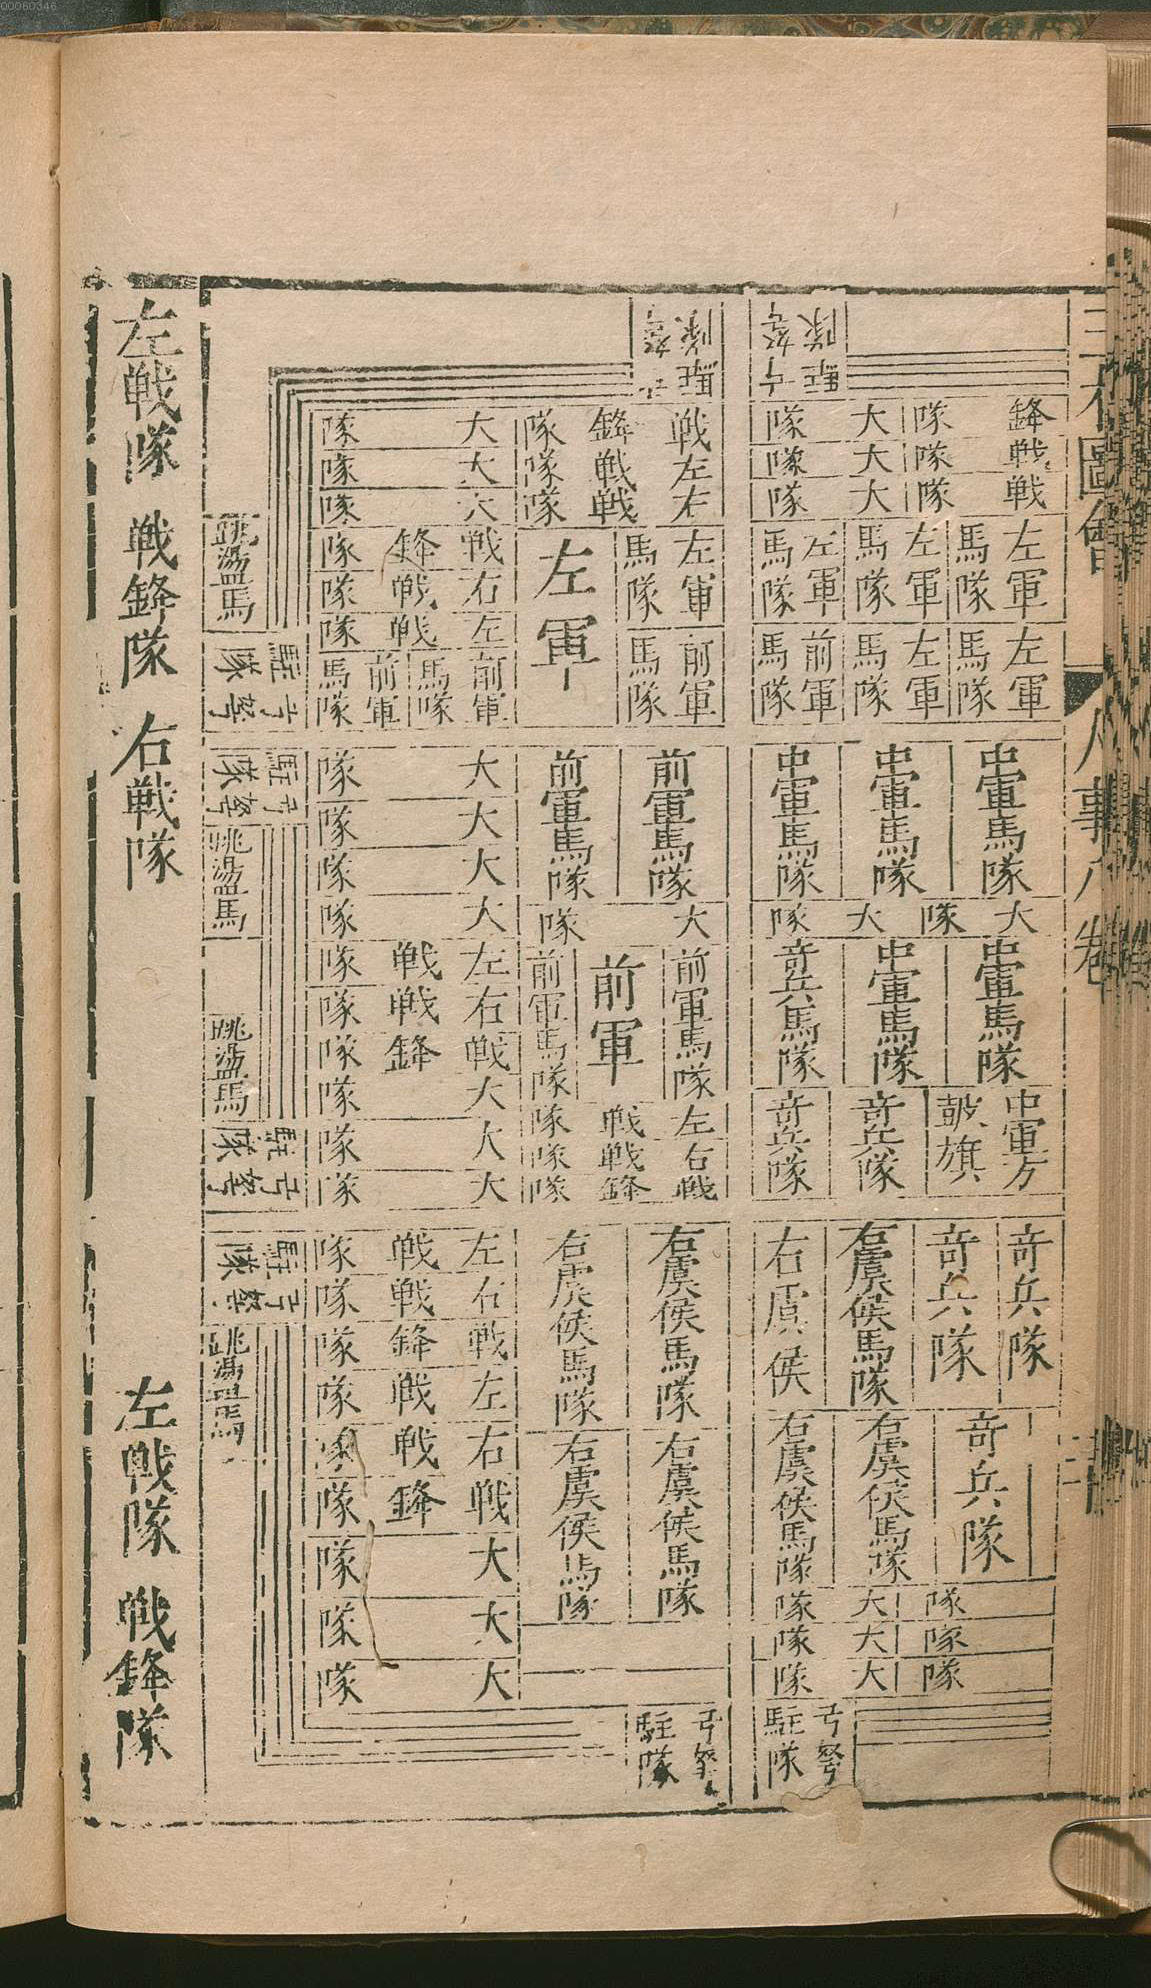 00060346
圖會
人事八卷
弓弩
駐隊
鋒隊
戦隊
戦隊
大隊
大隊
大隊
左軍馬隊
左軍馬隊
左軍馬隊
左軍馬隊
左軍馬隊
前軍馬隊
中軍馬隊
中軍馬隊
中軍馬隊
大隊
大隊
中軍馬隊
中軍馬隊
奇兵馬隊
中軍方
皷旗
奇兵隊
奇兵隊
奇兵隊
奇兵隊
右虞侯馬隊
右虞侯
奇兵隊
右虞侯馬隊
右虞侯馬隊
隊
隊
隊
大隊
大隊
大隊
弓弩
駐隊
弓弩
駐隊
戦鋒隊
左戦隊
右戦隊
左軍馬隊
前軍馬隊
左軍
前軍馬隊
前軍馬隊
大隊
前軍馬隊
前軍
前軍馬隊
左戦隊
右戦隊
戦鋒隊
右虞侯馬隊
右虞侯馬隊
右虞侯馬隊
右虞侯馬隊
弓弩
駐隊
大隊
大隊
大隊
戦鋒隊
右戦隊
左戦隊
前軍馬隊
前軍馬隊
大隊
大隊
大隊
大隊
左戦隊
右戦隊
戦鋒隊
大隊
大隊
大隊
左戦隊
右戦隊
戦鋒隊
左戦隊
右戦隊
戦鋒隊
大隊
大隊
大隊
跳盪馬
駐隊
弓弩
駐隊
弓弩
跳盪馬
跳盪馬
駐隊
弓弩
駐隊
弓弩
跳盪馬
左戦隊 戦鋒隊 右戦隊 左戦隊 戦鋒隊